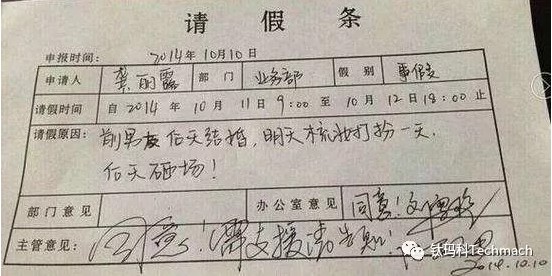 请假条
申报时间： 2014年10月10日
申请人 龚丽露 部门 业务部 假别 事假
请假时间 自2014年10月11日9:00至10月12日18:00止
请假原因： 前男友后天结婚，明天梳妆打扮一天，
后天砸场！
部门意见 办公室意见 同意！
主管意见 同意！需支援请告知！
2014.10.10
钛玛科Techmach